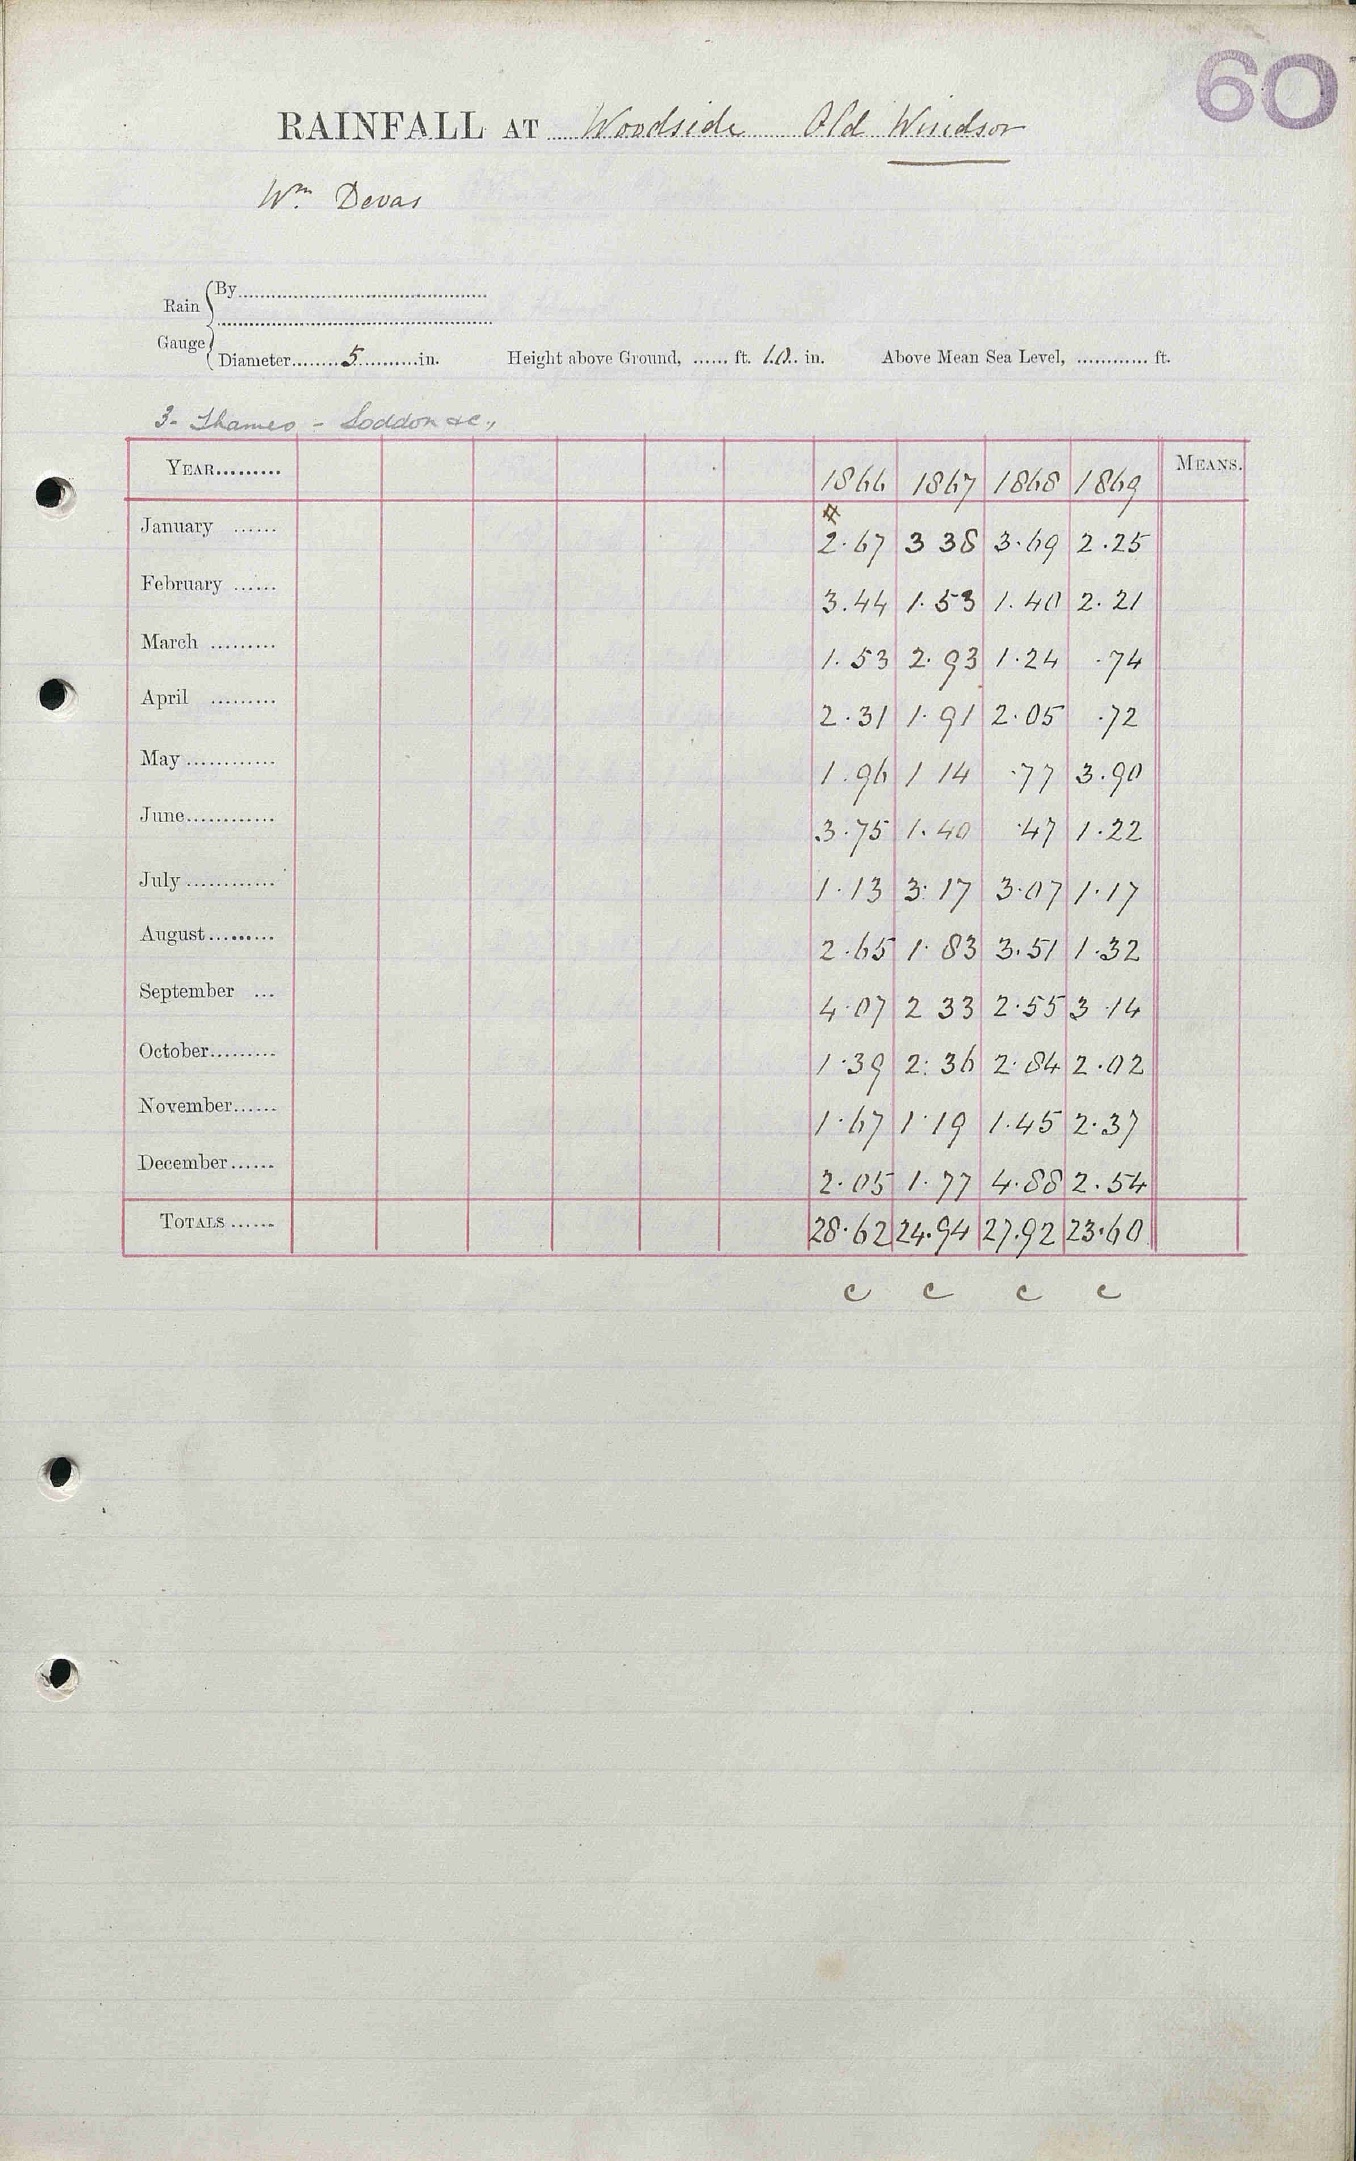 60
RAINFALL AT Woodside Old Windsor
Wm. Devas
Rain Gauge
By
Diameter 5 in. Height above Ground, ...... ft. 10 in. Above Mean Sea Level, ............ ft.
3. Thames - Loddon &c.,
YEAR......... 1866 1867 1868 1869 MEANS.
#
January ...... 2.67 3 38 3.69 2.25
February ...... 3.44 1.53 1.40 2.21
March ......... 1.53 2.93 1.24 .74
April ......... 2.31 1.91 2.05 .72
May ............ 1.96 1 14 .77 3.90
June............ 3.75 1.40 .47 1.22
July ............ 1.13 3.17 3.07 1.17
August......... 2.65 1.83 3.51 1.32
September ... 4.07 2 33 2.55 3.14
October......... 1.39 2.36 2.84 2.02
November...... 1.67 1.19 1.45 2.37
December...... 2.05 1.77 4.88 2.54
TOTALS ...... 28.62 24.94 27.92 23.60
c c c c